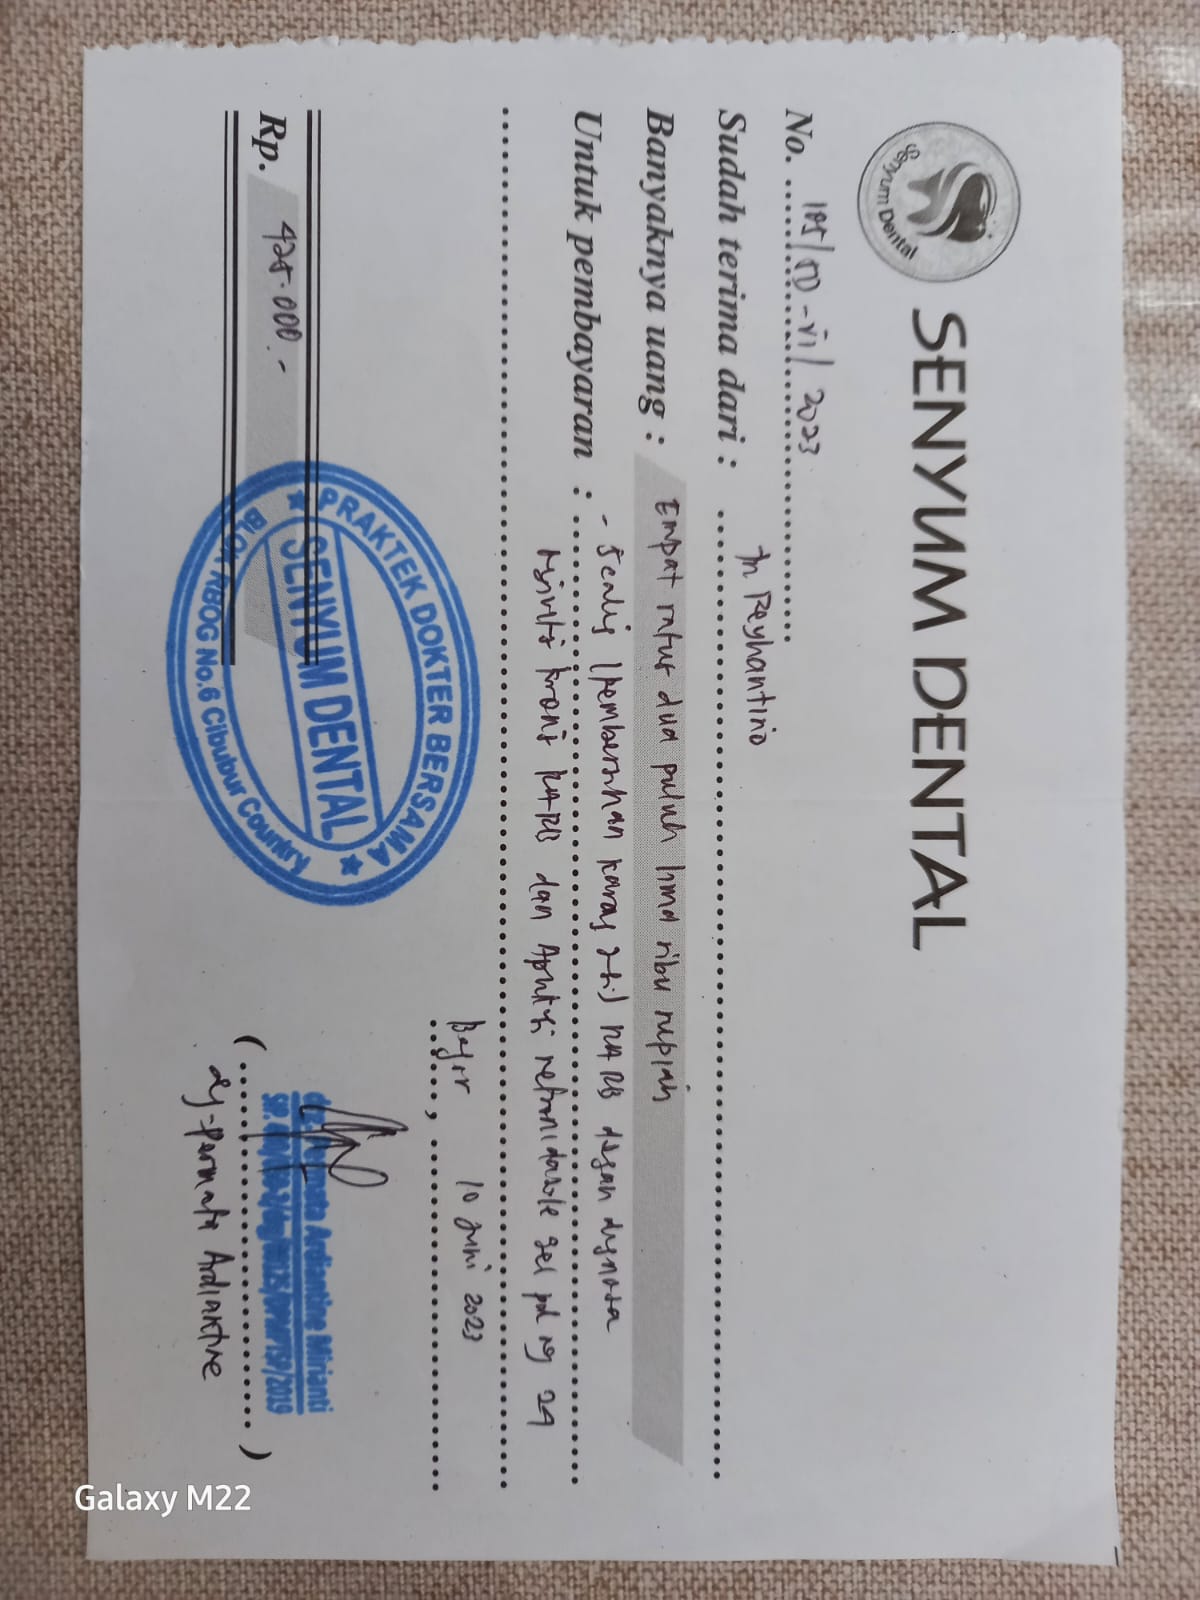 Senyum Dental
SENYUM DENTAL
No. 105/SD-VI/ 2023
Sudah terima dari : Tn Reyhantino
Banyaknya uang : Empat ratus dua puluh lima ribu rupiah
Untuk pembayaran : - Scaling (pembersihan karang gigi) RA RB dengan diagnosa
kronis RARB dan Aplikasi metronidazole gel pd rg 24
Bogor, 10 Juni 2023
PRAKTEK DOKTER BERSAMA
SENYUM DENTAL
BLOK RBOG No.6 Cibubur Country
Rp. 425.000.-
drg. Permata Ardiantine Mirianti
( )
drg. Permata Ardiantine
Galaxy M22